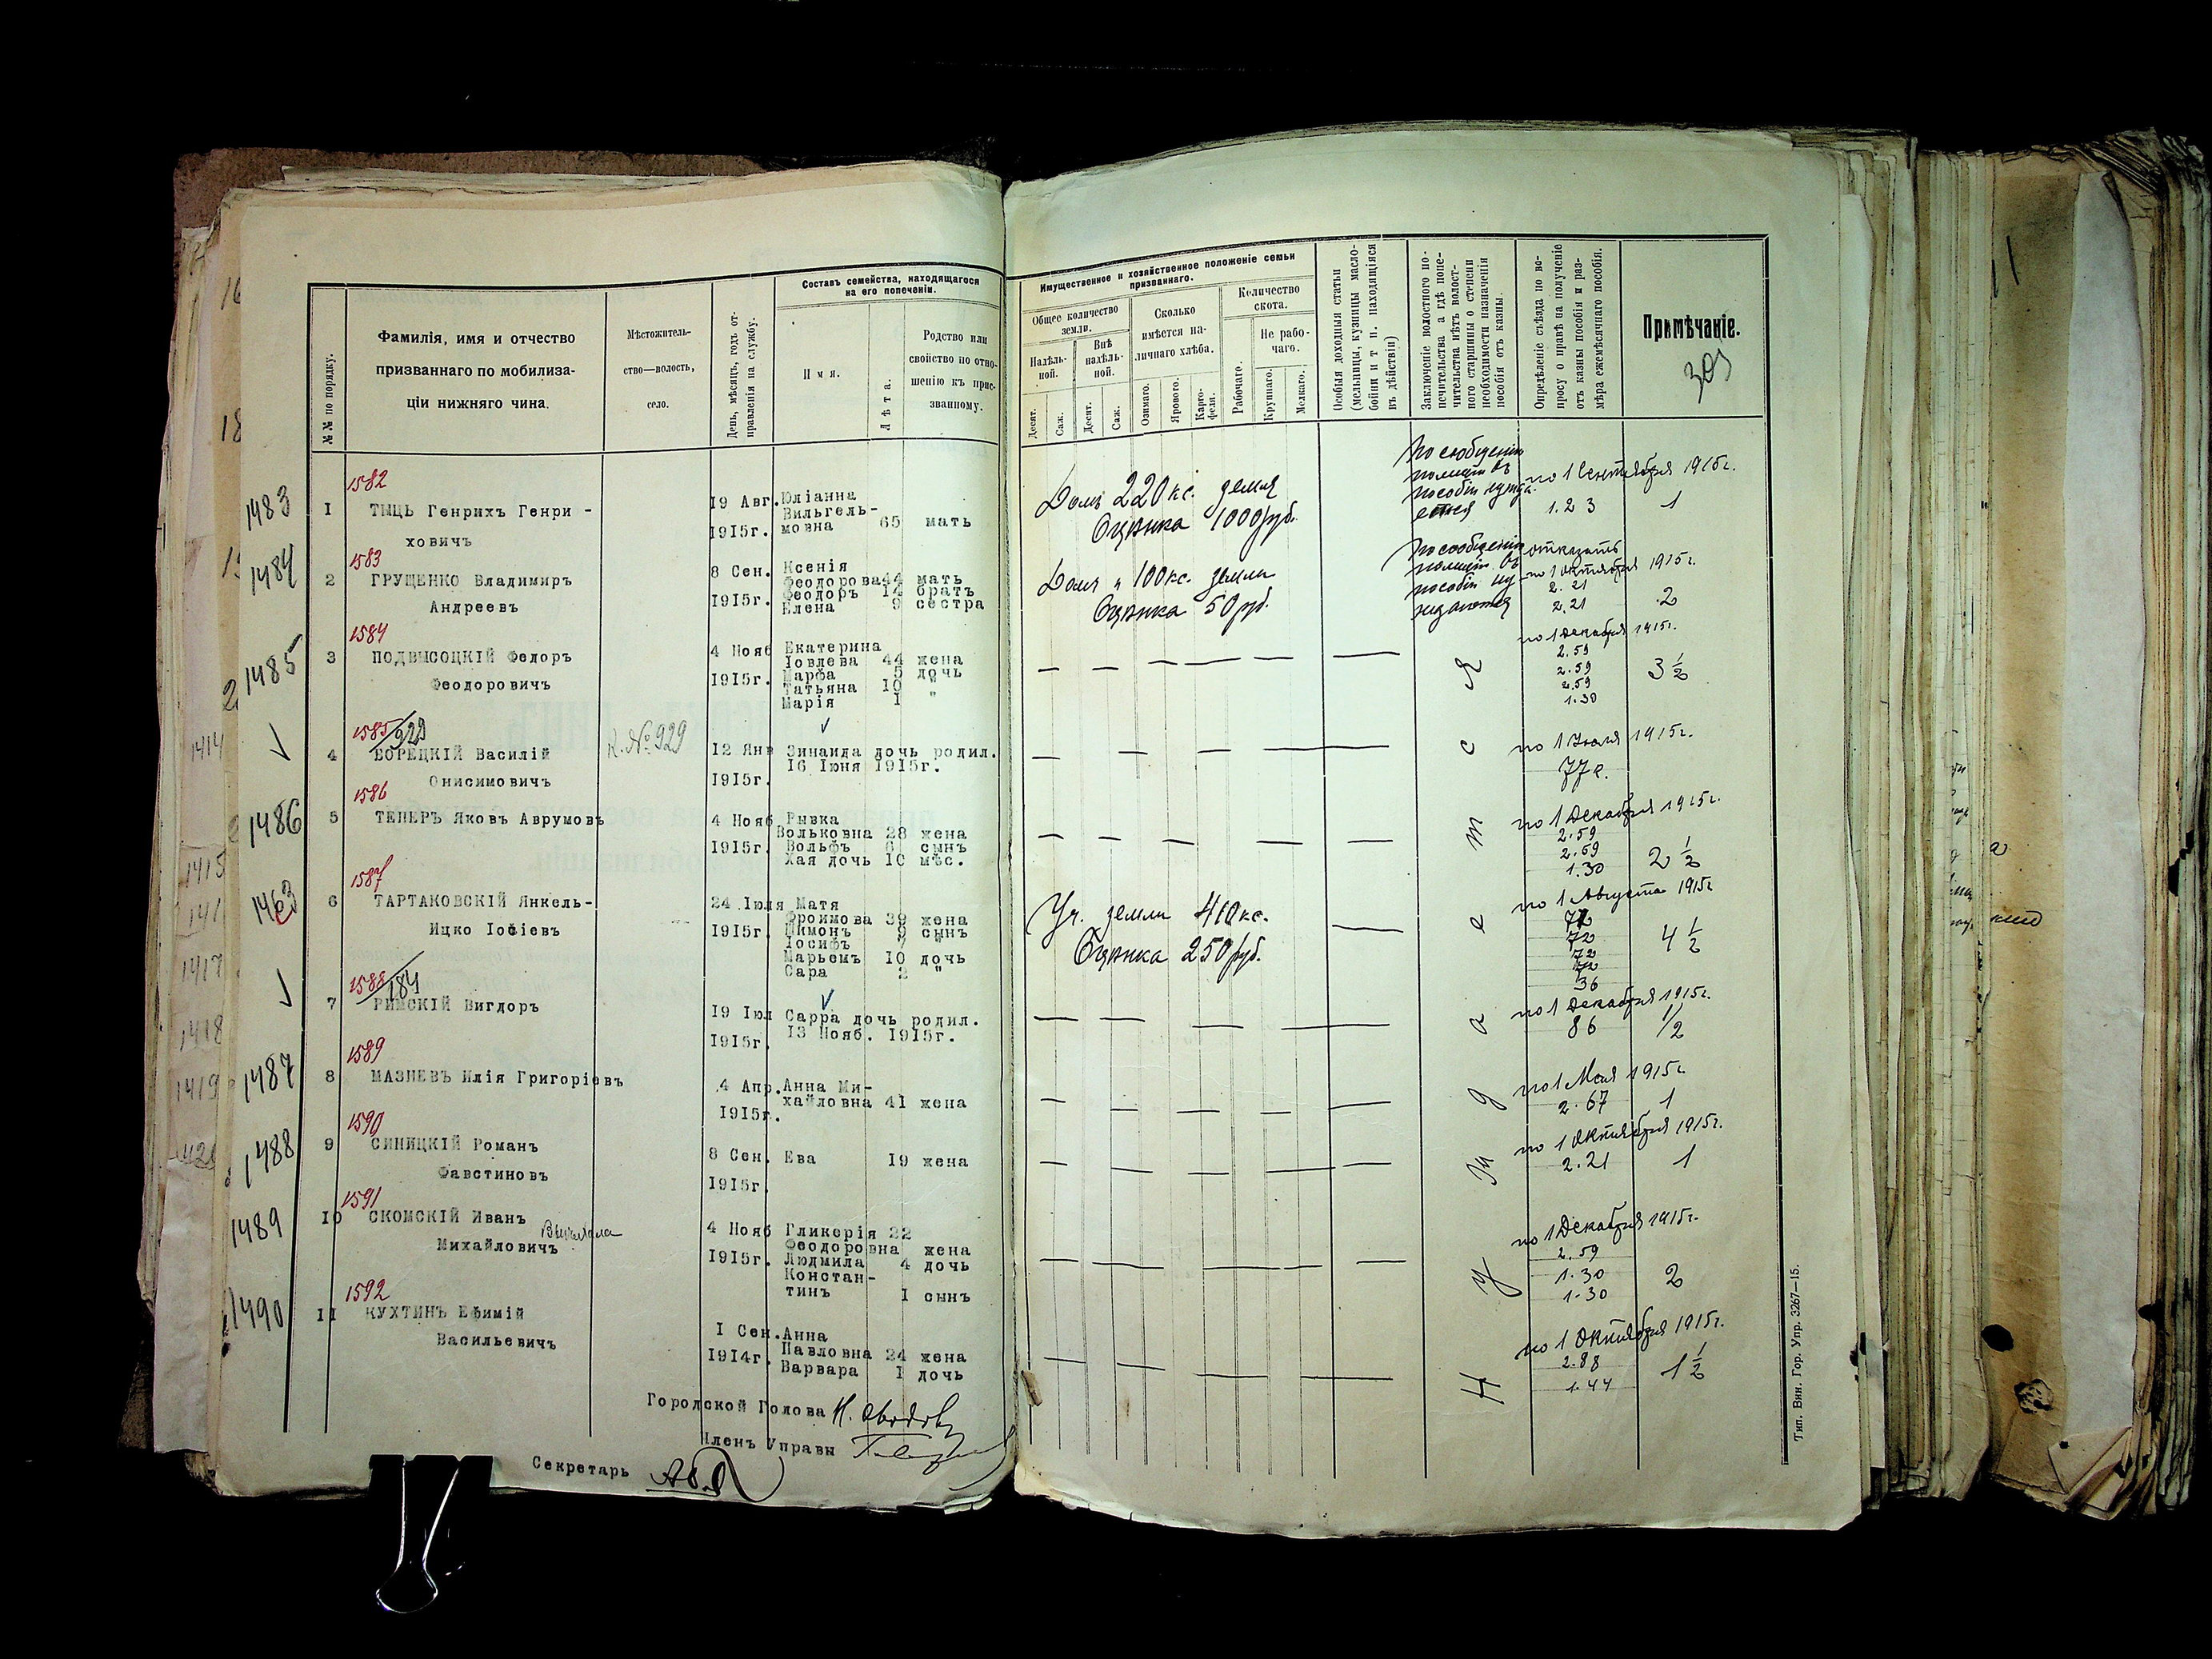 №№ по порядку.
Фамилія, имя и отчество
призваннаго по мобилиза-
ціи нижняго чина.
Мѣстожитель-
ство—волость,
село.
День, мѣсяцъ, годъ от-
правленія на службу.
Составъ семейства, находящагося
на его попеченіи.
Имя.
Лѣта.
Родство или
свойство по отно-
шенію къ приз-
званному.
Имущественное и хозяйственное положеніе семьи
призваннаго.
Общее количество
земли.
Надѣль-
ной.
Внѣ
надѣль-
ной.
Десят.
Саж.
Десят.
Саж.
Сколько
имѣется на-
личнаго хлѣба.
Озимаго.
Ярового.
Карто-
феля.
Количество
скота.
Рабочаго.
Не рабо-
чаго.
Крупнаго.
Мелкаго.
Особыя доходныя статьи
(мельницы, кузницы масло-
бойни и т п. находящіяся
въ дѣйствіи)
Заключеніе волостного по-
печительства а гдѣ попе-
чительства нѣтъ волост-
ного старшины о степени
необходимости назначенія
пособія отъ казны.
Опредѣленіе съѣзда по во-
просу о правѣ на полученіе
отъ казны пособія и раз-
мѣра ежемѣсячнаго пособія.
Примѣчаніе.
303
1483
1582
1 ТЫЦЬ Генрихъ Генри -
ховичъ
19 Авг.
1915г.
Юліанна
Вильгель-
мовна 65 мать
Домъ 220 кс. земля
Оцѣнка 1000 руб.
По сообщенію
полиціи въ
пособіи нужда-
ется
по 1 Сентября 1915г.
1.23 1
1484
1583
2 ГРУЩЕНКО Владимиръ
Андреевъ
8 Сен.
1915г.
Ксенія
Феодорова 44 мать
Феодоръ 14 братъ
Елена 9 сестра
Домъ и 100 кс. земли
Оцѣнка 50 руб.
По сообщенію
полиціи въ
пособіи ну-
ждаются
отказать
по 1 Октября 1915г.
2.21
2.21 2
1485
1584
3 ПОДВЫСОЦКІЙ Федоръ
Феодоровичъ
4 Нояб
1915г.
Екатерина
Іовлева 44 жена
Марфа 5 дочь
Татьяна 10 "
Марія 1 "
по 1 Декабря 1915г.
2.59
2.59
2.59
1.30
3 1/2
1585/929
4 БОРЕЦКІЙ Василій
Онисимовичъ
К. № 929
12 Янв
1915г.
Зинаида дочь родил.
16 Іюня 1915г.
по 1 Июля 1915г.
77к.
1486
1586
5 ТЕПЕРЪ Яковъ Аврумовъ
4 Нояб
1915г.
Рывка
Вольковна 28 жена
Вольфъ 6 сынъ
Хая дочь 10 мѣс.
по 1 Декабря 1915г.
2.59
2.59
1.30
2 1/2
1463
1587
6 ТАРТАКОВСКІЙ Янкель-
Ицко Іосіевъ
24 Іюля
1915г.
Матя
Фроимова 39 жена
Шимонъ 8 сынъ
Іосифъ 7 "
Марьемъ 10 дочь
Сара 2 "
Уч. земли 410 кс.
Оцѣнка 250 руб.
по 1 Августа 1915г
72
72
72
72
36
4 1/2
1588/184
7 РИМСКІЙ Вигдоръ
19 Іюл
1915г.
Сарра дочь родил.
13 Нояб. 1915г.
по 1 Декабря 1915г.
86 1/2
1487
1589
8 МАЗНЕВЪ Илія Григоріевъ
4 Апр.
1915г.
Анна Ми-
хайловна 41 жена
по 1 Мая 1915г.
2.67 1
1488
1590
9 СИНИЦКІЙ Романъ
Фавстиновъ
8 Сен.
1915г.
Ева 19 жена
по 1 Октября 1915г.
2.21 1
1489
1591
10 СКОМСКІЙ Иванъ
Михайловичъ
4 Нояб
1915г.
Гликерія 22
Феодоровна жена
Людмила 4 дочь
Констан-
тинъ 1 сынъ
по 1 Декабря 1915г.
2.59
1.30
1.30
2
1490
1592
11 КУХТИНЪ Ефимій
Васильевичъ
1 Сен.
1914г.
Анна
Павловна 24 жена
Варвара 1 дочь
по 1 Октября 1915г.
2.88
1.44
1 1/2
Н у ж д а е т с я
Городской Голова
Членъ Управы
Секретарь
Тип. Вин. Гор. Упр. 3267—15.
1414
1415
1417
1418
1419